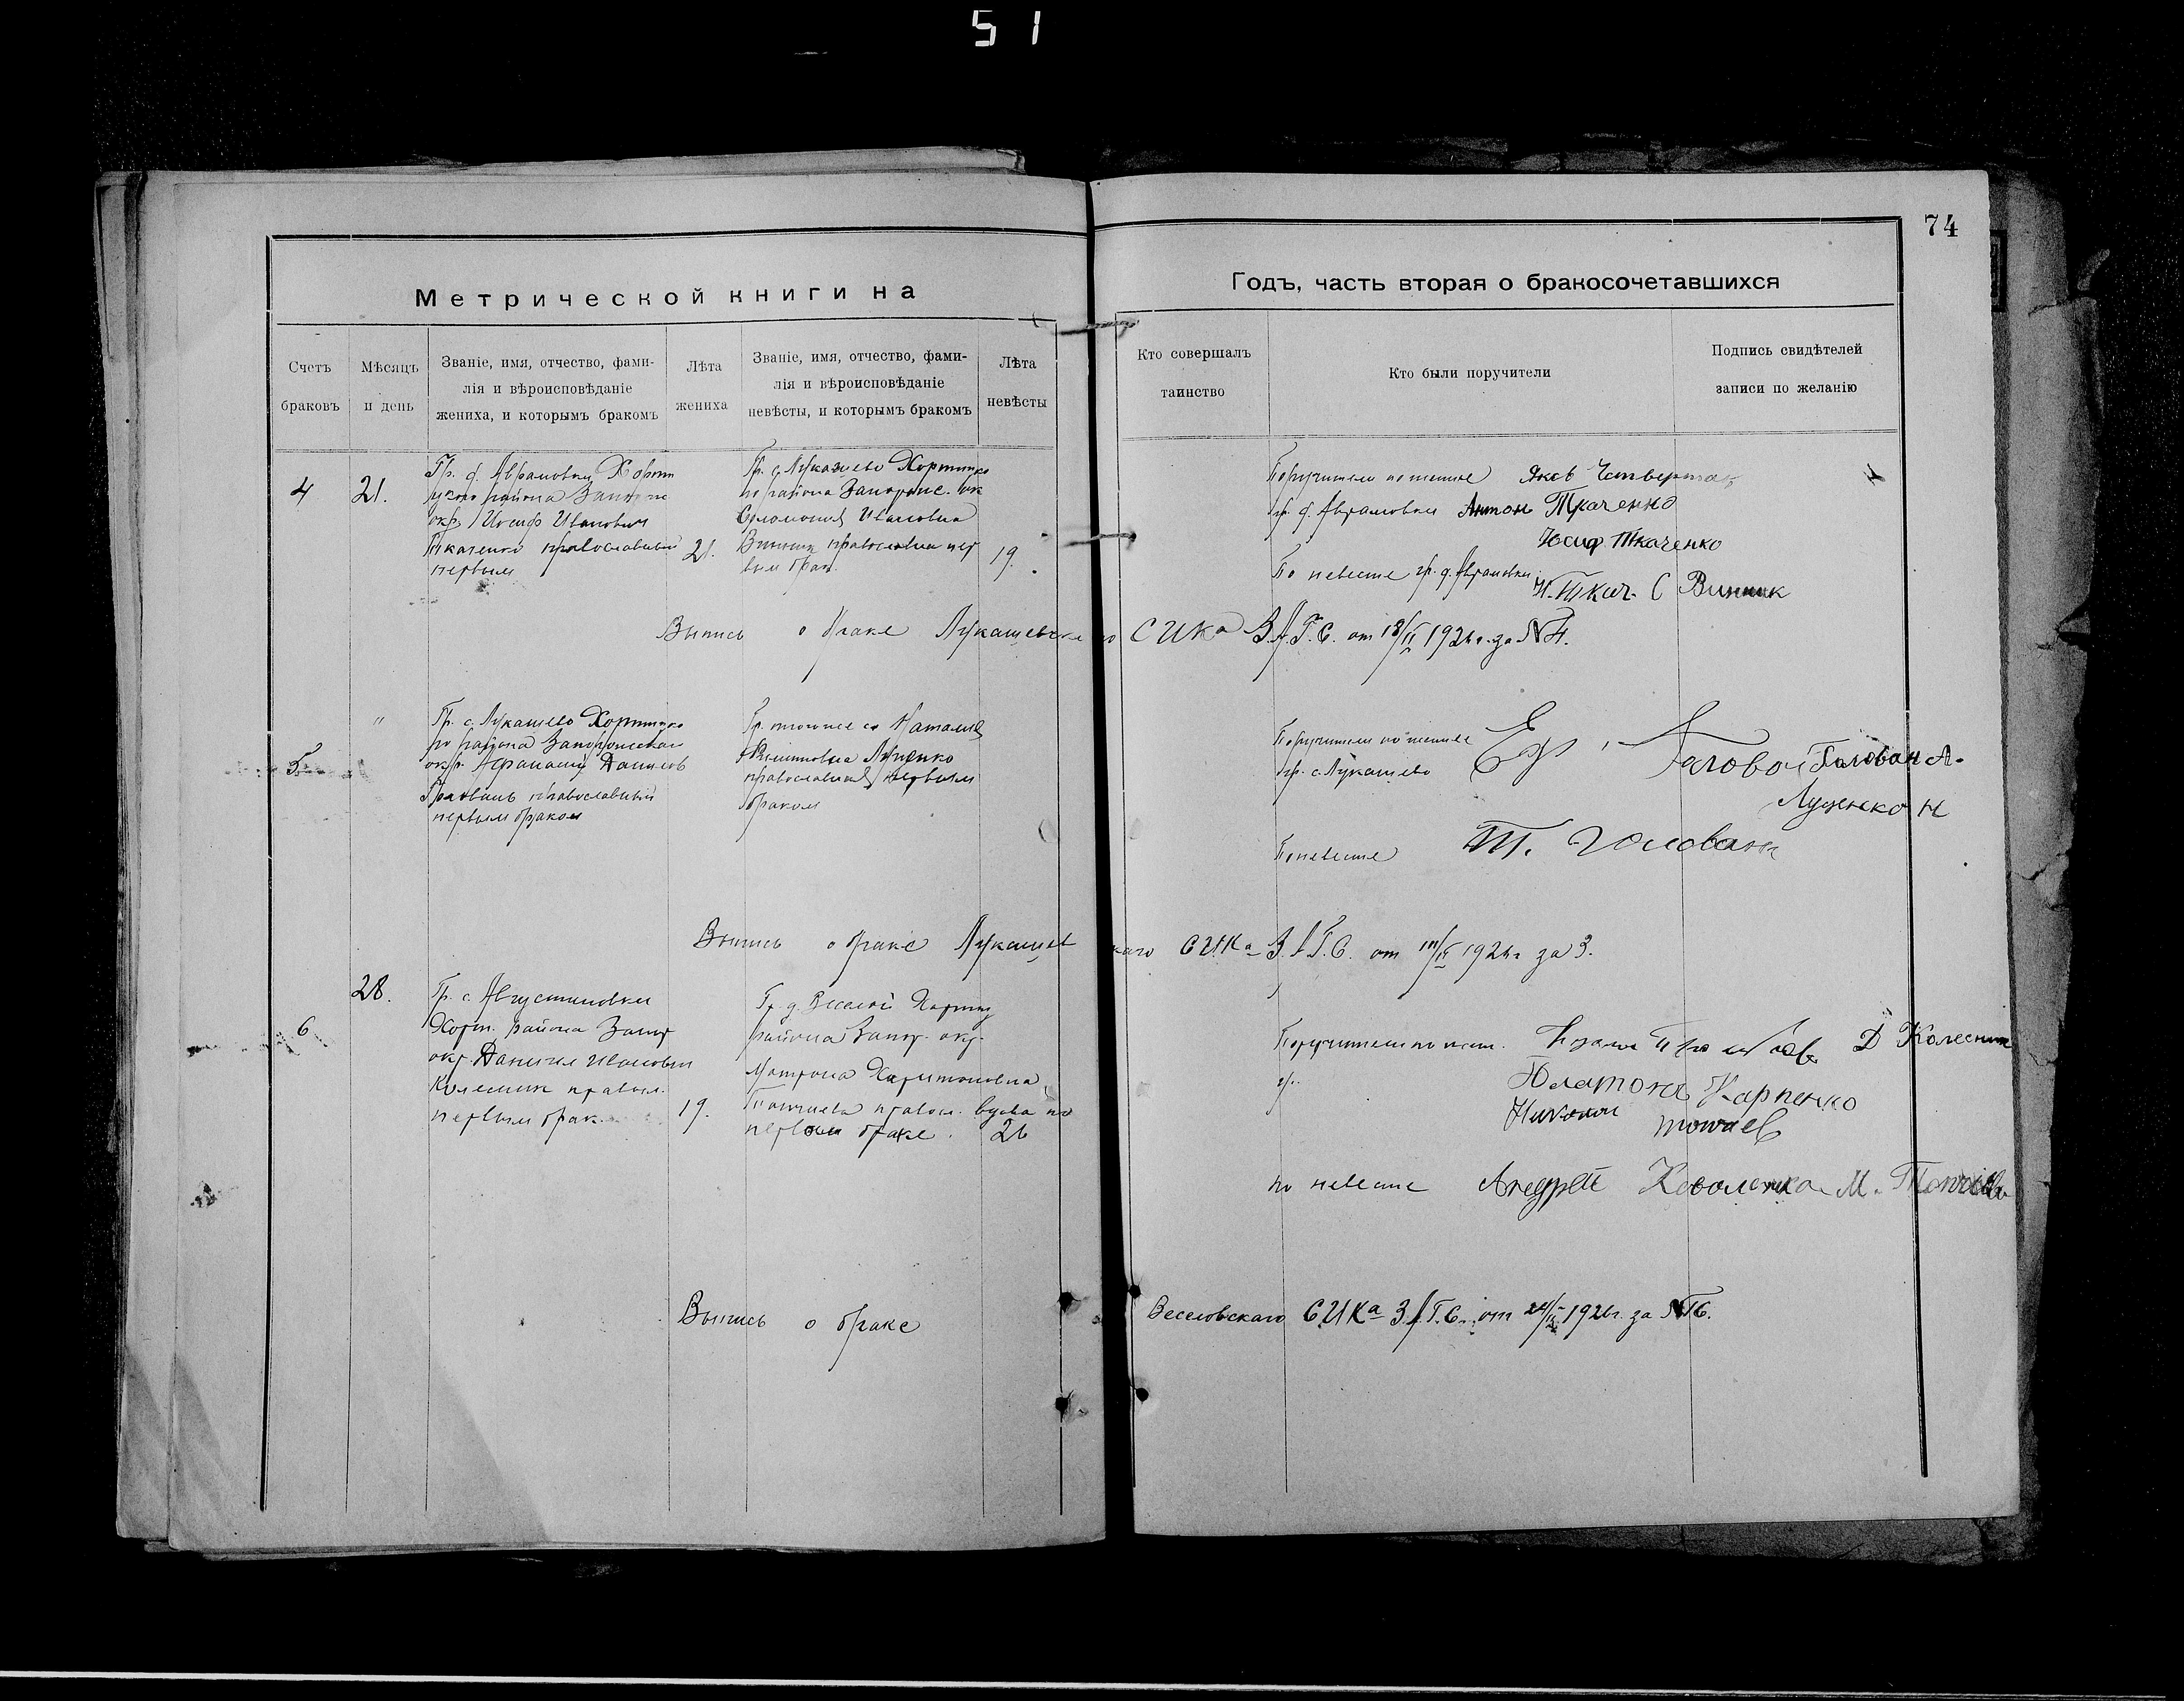 51
74
Метрической книги на
Годъ, часть вторая о бракосочетавшихся
Счетъ браковъ
Мѣсяцъ и день
Званіе, имя, отчество, фами-
лія и вѣроисповѣданіе
жениха, и которымъ бракомъ
Лѣта жениха
Званіе, имя, отчество, фами-
лія и вѣроисповѣданіе
невѣсты, и которымъ бракомъ
Лѣта невѣсты
Кто совершалъ таинство
Кто были поручители
Подпись свидѣтелей
записи по желанію
4
21.
Гр. д. Аврамовки Хорти
района
окр. Иосиф Иванович
Ткаченко православный
первым
21.
Гр. с. Лукашево Хортицко
го района Запорожс. ок
Соломония Ивановна
Винник православна пер
вым брак.
19.
Поручители по жениху Яков Четвертак
гр. д. Аврамовки Антон Ткаченко
Иосиф Ткаченко
По невесте гр. д. Аврамовки
И. Ткач. С Винник
Выпись о браке Лукашевского СИКа З.А.Г.С. от 18/II 192 г. за №4.
5
"
Гр. с. Лукашево Хортицко
го района Запорожской
окр. Афанасий Данилов
Головань православный
первым браком
Гр. того же с. Наталия
Лущенко
православная первым
браком
Поручители по жениху
гр. с. Лукашево
Голован А.
Лущенко Н
По невесте Т. Голован
Выпись о браке Лукашевскаго СИКа З.А.Г.С. от 192 г за 3.
6
28.
Гр. с. Августиновки
Хорт. района Запор
окр. Даниил Иванович
Колесник правосл.
первым брак.
19.
Гр. д. Веселой Хортиц
района Запор. окр.
Матрона Харитоновна
правосл. вдова по
первом браке.
26
Поручители по жен.
Д Колесник
гр.
Платон Карпенко
Николай
по невесте Андрей Коваленко М.
Выпись о браке Веселовскаго СИКа З.А.Г.С. от 24/II 1926г. за №6.